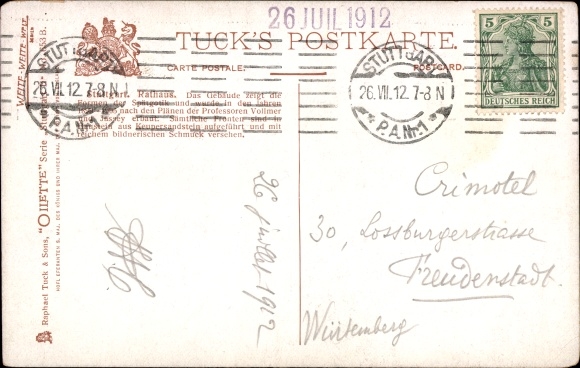 26 JUIL 1912
TUCK'S POSTKARTE.
CARTE POSTALE.
POSTCARD.
5 5
DEUTSCHES REICH
STUTTGART
26.VII.12.7-8 N
P.A.Nr.1
STUTTGART
26.VII.12.7-8 N
P.A.Nr.1
Stuttgart. Rathaus. Das Gebäude zeigt die
Formen der Spätgotik und wurde in den Jahren
nach den Plänen der Professoren Vollmer
und Jassoy erbaut. Sämtliche Fronten sind in
aus Keupersandstein aufgeführt und mit
reichem bildnerischen Schmuck versehen.
Raphael Tuck & Sons, "OILETTE" Serie
HOFLIEFERANTEN S. MAJ. DES KÖNIGS UND IHRER MAJ.
26 juillet 1912
Crimotel
30, Lossburgerstrasse
Freudenstadt.
Würtemberg